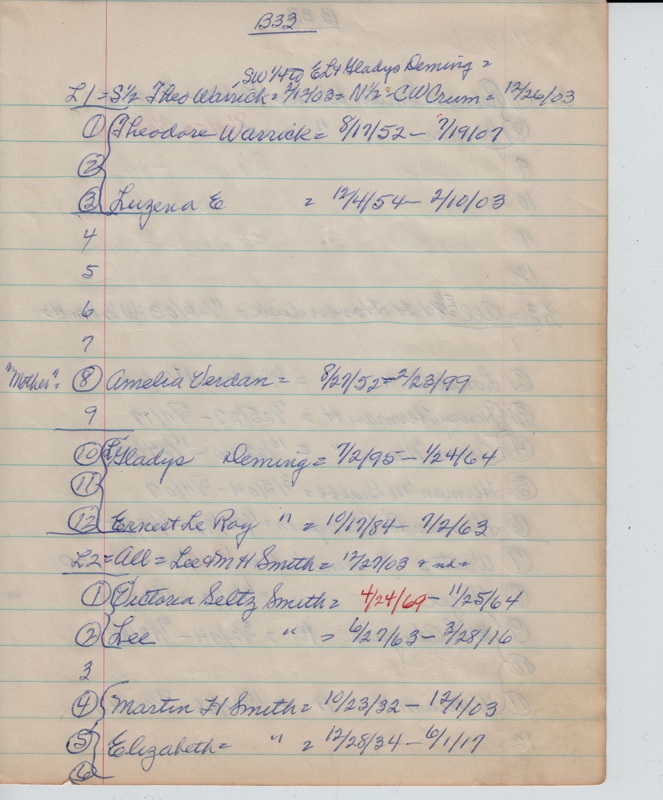 B33
SW 1/4 to EL & Gladys Deming =
L1 = S 1/2 Theo Warrick = 2/12/03 = N 1/2 - CW Crum = 12/26/03
1 Theodore Warrick = 8/17/52 - 7/19/07
2
3 Luzena E = 12/4/54 - 2/10/03
4
5
6
7
"Mother" = 8 Amelia Verdan = 8/27/52 - 2/23/99
9
10 Gladys Deming = 7/2/95 - 1/24/64
11
12 Ernest Le Roy " = 10/17/84 - 7/2/63
L2 = All = Lee & M H Smith = 12/27/03
1 Victoria Seltz Smith = 4/24/69 - 11/25/64
2 Lee " = 6/27/63 - 3/28/16
3
4 Martin H Smith = 10/23/32 - 12/1/03
5 Elizabeth = " = 12/28/34 - 6/1/17
6